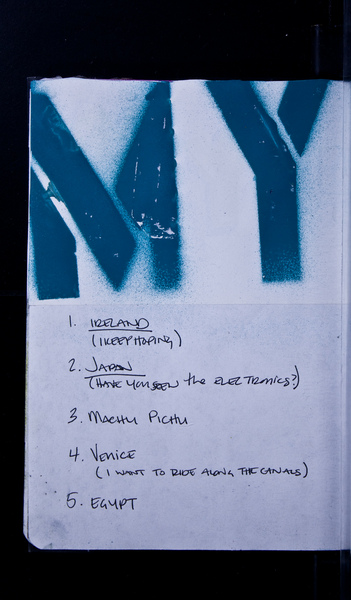 NY
1. IRELAND
(I KEEP HOPING)
2. JAPAN
(HAVE YOU SEEN the ELECTRONICS?)
3. MACHU PICHU
4. VENICE
(I WANT TO RIDE ALONG THE CANALS)
5. EGYPT